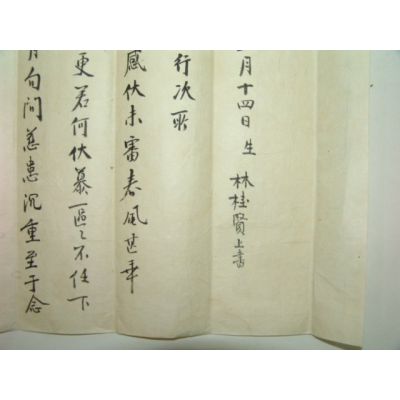 月十四日生 林桂賢上書
行次
感伏未審春風甚乖
更若何伏慕區〻不任下
旬間慈患沉重至于念